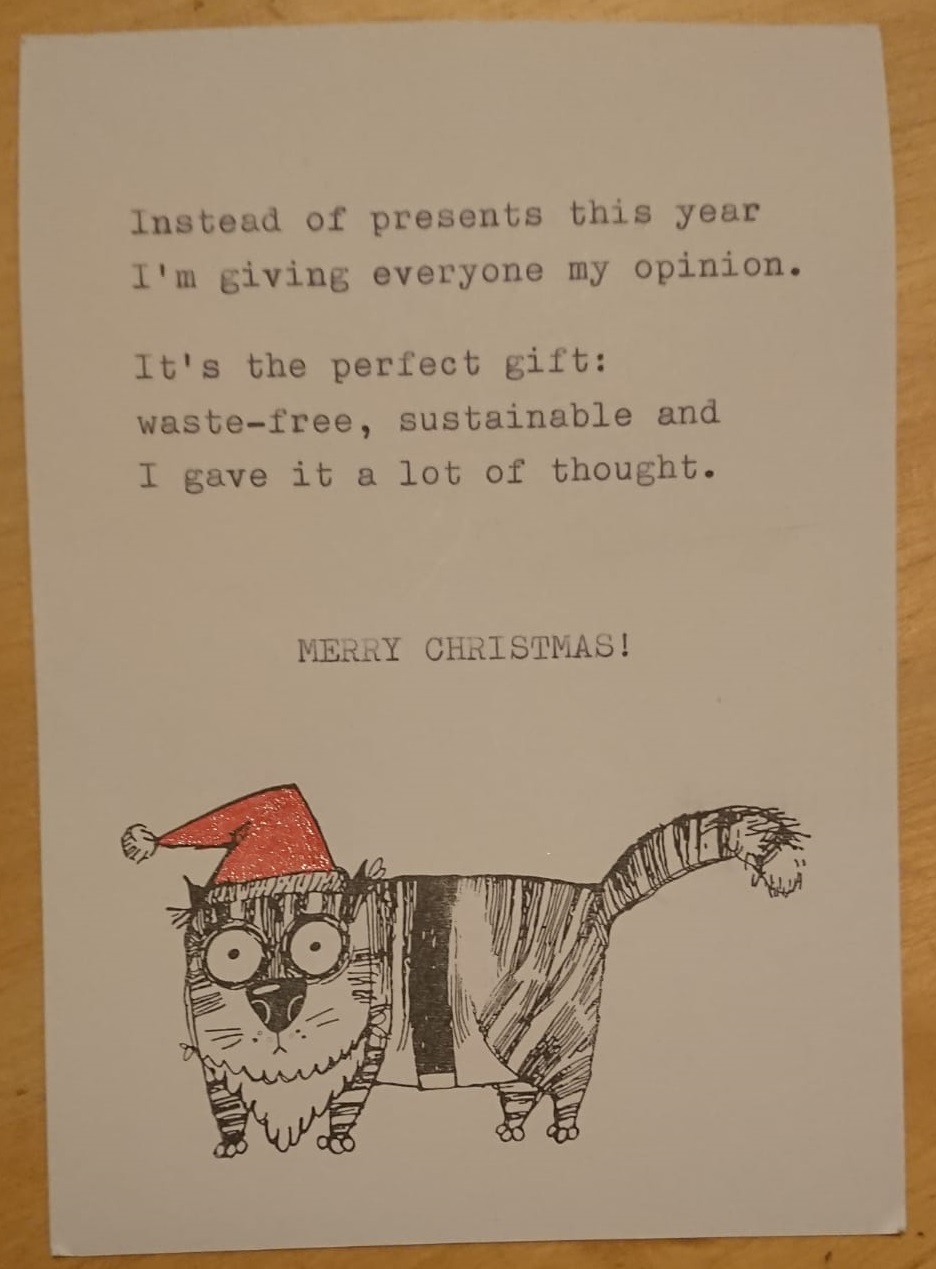 Instead of presents this year
I'm giving everyone my opinion.
It's the perfect gift:
waste-free, sustainable and
I gave it a lot of thought.
MERRY CHRISTMAS!